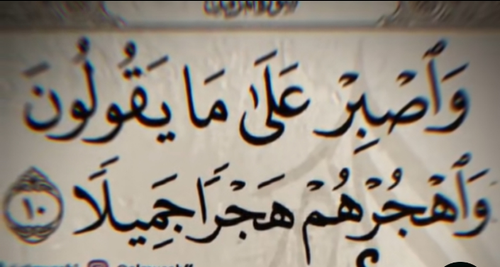 وَٱصْبِرْ عَلَىٰ مَا يَقُولُونَ
وَٱهْجُرْهُمْ هَجْرًا جَمِيلًا ١٠